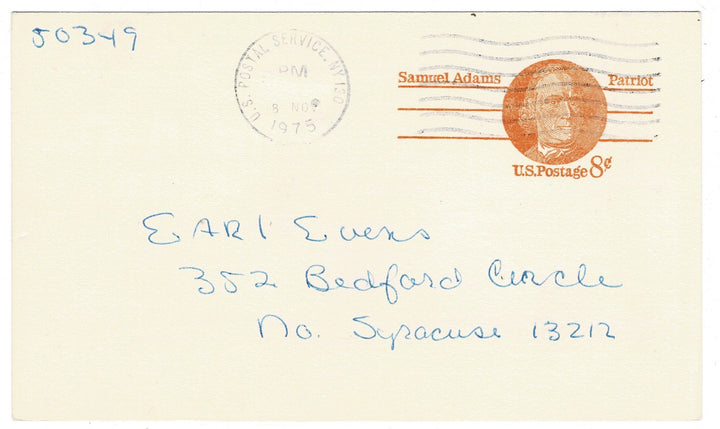 50349
U.S. POSTAL SERVICE, NY 130
PM
8 NOV
1975
Samuel Adams Patriot
U.S.Postage 8¢
EARl Evens
352 Bedford Circle
No. Syracuse 13212